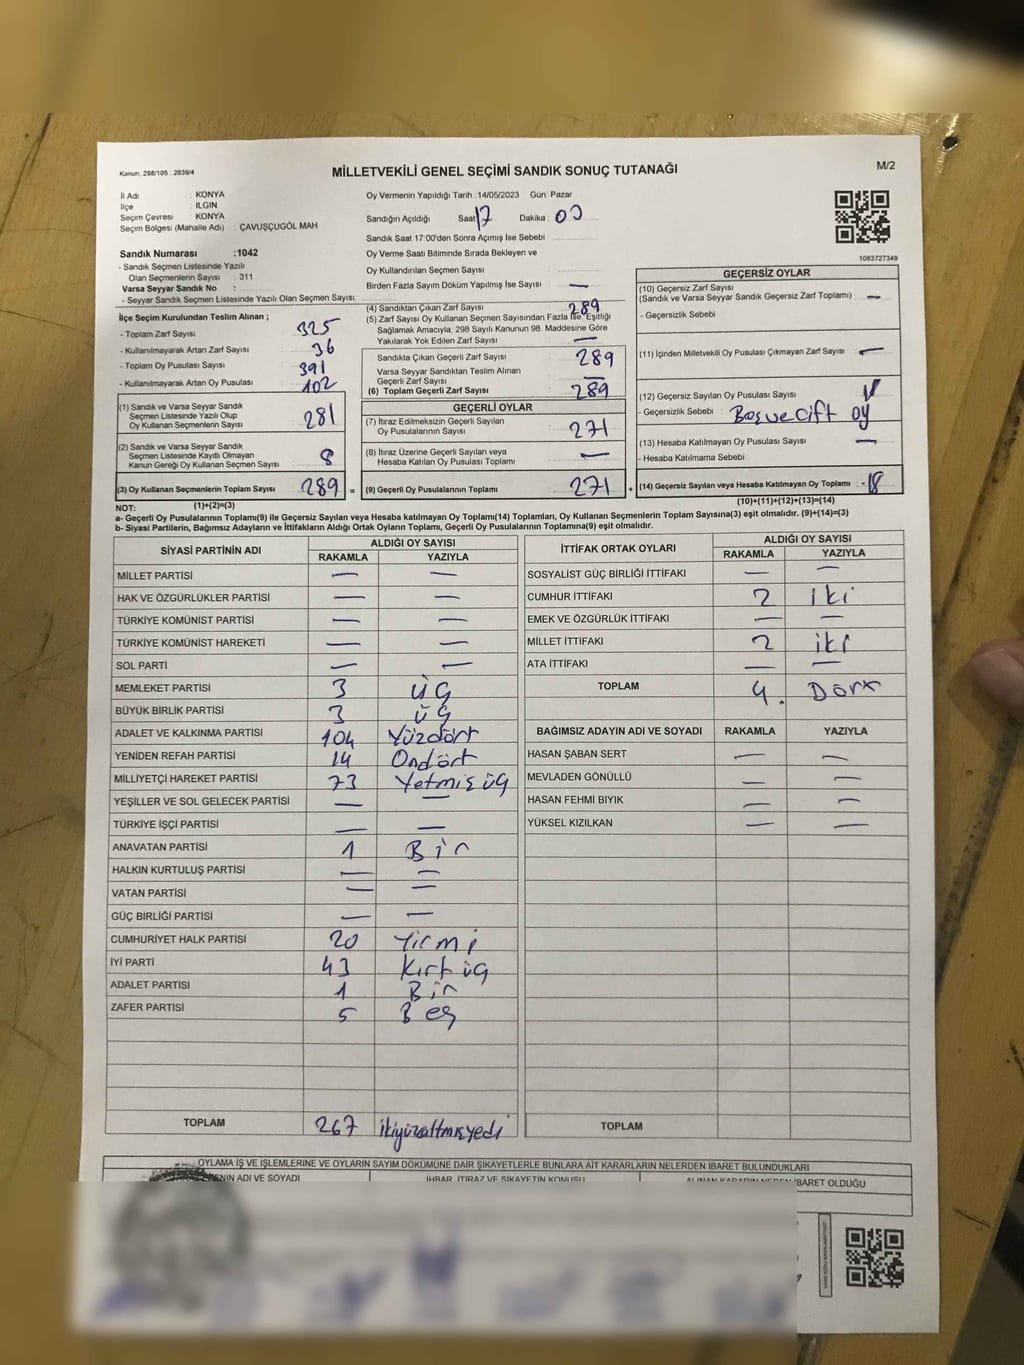 Kanun: 298/105 , 2839/4
MİLLETVEKİLİ GENEL SEÇİMİ SANDIK SONUÇ TUTANAĞI
M/2
İl Adı : KONYA
İlçe : ILGIN
Seçim Çevresi : KONYA
Seçim Bölgesi (Mahalle Adı) : ÇAVUŞÇUGÖL MAH
Oy Vermenin Yapıldığı Tarih : 14/05/2023 Gün: Pazar
Sandığın Açıldığı Saat 17 Dakika : 00
Sandık Saat 17:00'den Sonra Açımış İse Sebebi :
Oy Verme Saati Bitiminde Sırada Bekleyen ve
Oy Kullandırılan Seçmen Sayısı
Birden Fazla Sayım Döküm Yapılmış İse Sayısı : —
1083727349
Sandık Numarası :1042
- Sandık Seçmen Listesinde Yazılı
Olan Seçmenlerin Sayısı : 311
Varsa Seyyar Sandık No :
- Seyyar Sandık Seçmen Listesinde Yazılı Olan Seçmen Sayısı:
İlçe Seçim Kurulundan Teslim Alınan ;
- Toplam Zarf Sayısı : 325
- Kullanılmayarak Artan Zarf Sayısı : 36
- Toplam Oy Pusulası Sayısı : 391
- Kullanılmayarak Artan Oy Pusulası : 102
(1) Sandık ve Varsa Seyyar Sandık
Seçmen Listesinde Yazılı Olup
Oy Kullanan Seçmenlerin Sayısı : 281
(2) Sandık ve Varsa Seyyar Sandık
Seçmen Listesinde Kayıtlı Olmayan
Kanun Gereği Oy Kullanan Seçmen Sayısı : 8
(3) Oy Kullanan Seçmenlerin Toplam Sayısı : 289 =
(1)+(2)=(3)
(4) Sandıktan Çıkan Zarf Sayısı : 289
(5) Zarf Sayısı Oy Kullanan Seçmen Sayısından Fazla İse, Eşitliği
Sağlamak Amacıyla, 298 Sayılı Kanunun 98. Maddesine Göre
Yakılarak Yok Edilen Zarf Sayısı : —
Sandıkta Çıkan Geçerli Zarf Sayısı : 289
Varsa Seyyar Sandıktan Teslim Alınan
Geçerli Zarf Sayısı : —
(6) Toplam Geçerli Zarf Sayısı : 289
GEÇERLİ OYLAR
(7) İtiraz Edilmeksizin Geçerli Sayılan
Oy Pusulalarının Sayısı : 271
(8) İtiraz Üzerine Geçerli Sayılan veya
Hesaba Katılan Oy Pusulası Toplamı : —
(9) Geçerli Oy Pusulalarının Toplamı : 271 +
GEÇERSİZ OYLAR
(10) Geçersiz Zarf Sayısı
(Sandık ve Varsa Seyyar Sandık Geçersiz Zarf Toplamı) : —
- Geçersizlik Sebebi :
(11) İçinden Milletvekili Oy Pusulası Çıkmayan Zarf Sayısı : —
(12) Geçersiz Sayılan Oy Pusulası Sayısı :
- Geçersizlik Sebebi : Boş ve Çift oy
(13) Hesaba Katılmayan Oy Pusulası Sayısı : —
- Hesaba Katılmama Sebebi :
(14) Geçersiz Sayılan veya Hesaba Katılmayan Oy Toplamı : 18
(10)+(11)+(12)+(13)=(14)
NOT:
a- Geçerli Oy Pusulalarının Toplamı(9) ile Geçersiz Sayılan veya Hesaba katılmayan Oy Toplamı(14) Toplamları, Oy Kullanan Seçmenlerin Toplam Sayısına(3) eşit olmalıdır. (9)+(14)=(3)
b- Siyasi Partilerin, Bağımsız Adayların ve İttifakların Aldığı Ortak Oyların Toplamı, Geçerli Oy Pusulalarının Toplamına(9) eşit olmalıdır.
SİYASİ PARTİNİN ADI ALDIĞI OY SAYISI
RAKAMLA YAZIYLA
MİLLET PARTİSİ — —
HAK VE ÖZGÜRLÜKLER PARTİSİ — —
TÜRKİYE KOMÜNİST PARTİSİ — —
TÜRKİYE KOMÜNİST HAREKETİ — —
SOL PARTİ — —
MEMLEKET PARTİSİ 3 üç
BÜYÜK BİRLİK PARTİSİ 3 üç
ADALET VE KALKINMA PARTİSİ 104 Yüzdört
YENİDEN REFAH PARTİSİ 14 Ondört
MİLLİYETÇİ HAREKET PARTİSİ 73 Yetmiş üç
YEŞİLLER VE SOL GELECEK PARTİSİ — —
TÜRKİYE İŞÇİ PARTİSİ — —
ANAVATAN PARTİSİ 1 Bir
HALKIN KURTULUŞ PARTİSİ — —
VATAN PARTİSİ — —
GÜÇ BİRLİĞİ PARTİSİ — —
CUMHURİYET HALK PARTİSİ 20 Yirmi
İYİ PARTİ 43 Kırk üç
ADALET PARTİSİ 1 Bir
ZAFER PARTİSİ 5 Beş
TOPLAM 267 ikiyüzaltmışyedi
İTTİFAK ORTAK OYLARI ALDIĞI OY SAYISI
RAKAMLA YAZIYLA
SOSYALİST GÜÇ BİRLİĞİ İTTİFAKI — —
CUMHUR İTTİFAKI 2 iki
EMEK VE ÖZGÜRLÜK İTTİFAKI — —
MİLLET İTTİFAKI 2 iki
ATA İTTİFAKI — —
TOPLAM 4. Dört
BAĞIMSIZ ADAYIN ADI VE SOYADI RAKAMLA YAZIYLA
HASAN ŞABAN SERT — —
MEVLADEN GÖNÜLLÜ — —
HASAN FEHMI BIYIK — —
YÜKSEL KIZILKAN — —
TOPLAM
OYLAMA İŞ VE İŞLEMLERİNE VE OYLARIN SAYIM DÖKÜMÜNE DAİR ŞİKAYETLERLE BUNLARA AİT KARARLARIN NELERDEN İBARET BULUNDUKLARI
ENİN ADI VE SOYADI İHBAR, İTİRAZ VE ŞİKAYETİN KONUSU ALINAN KARARIN NEDEN İBARET OLDUĞU